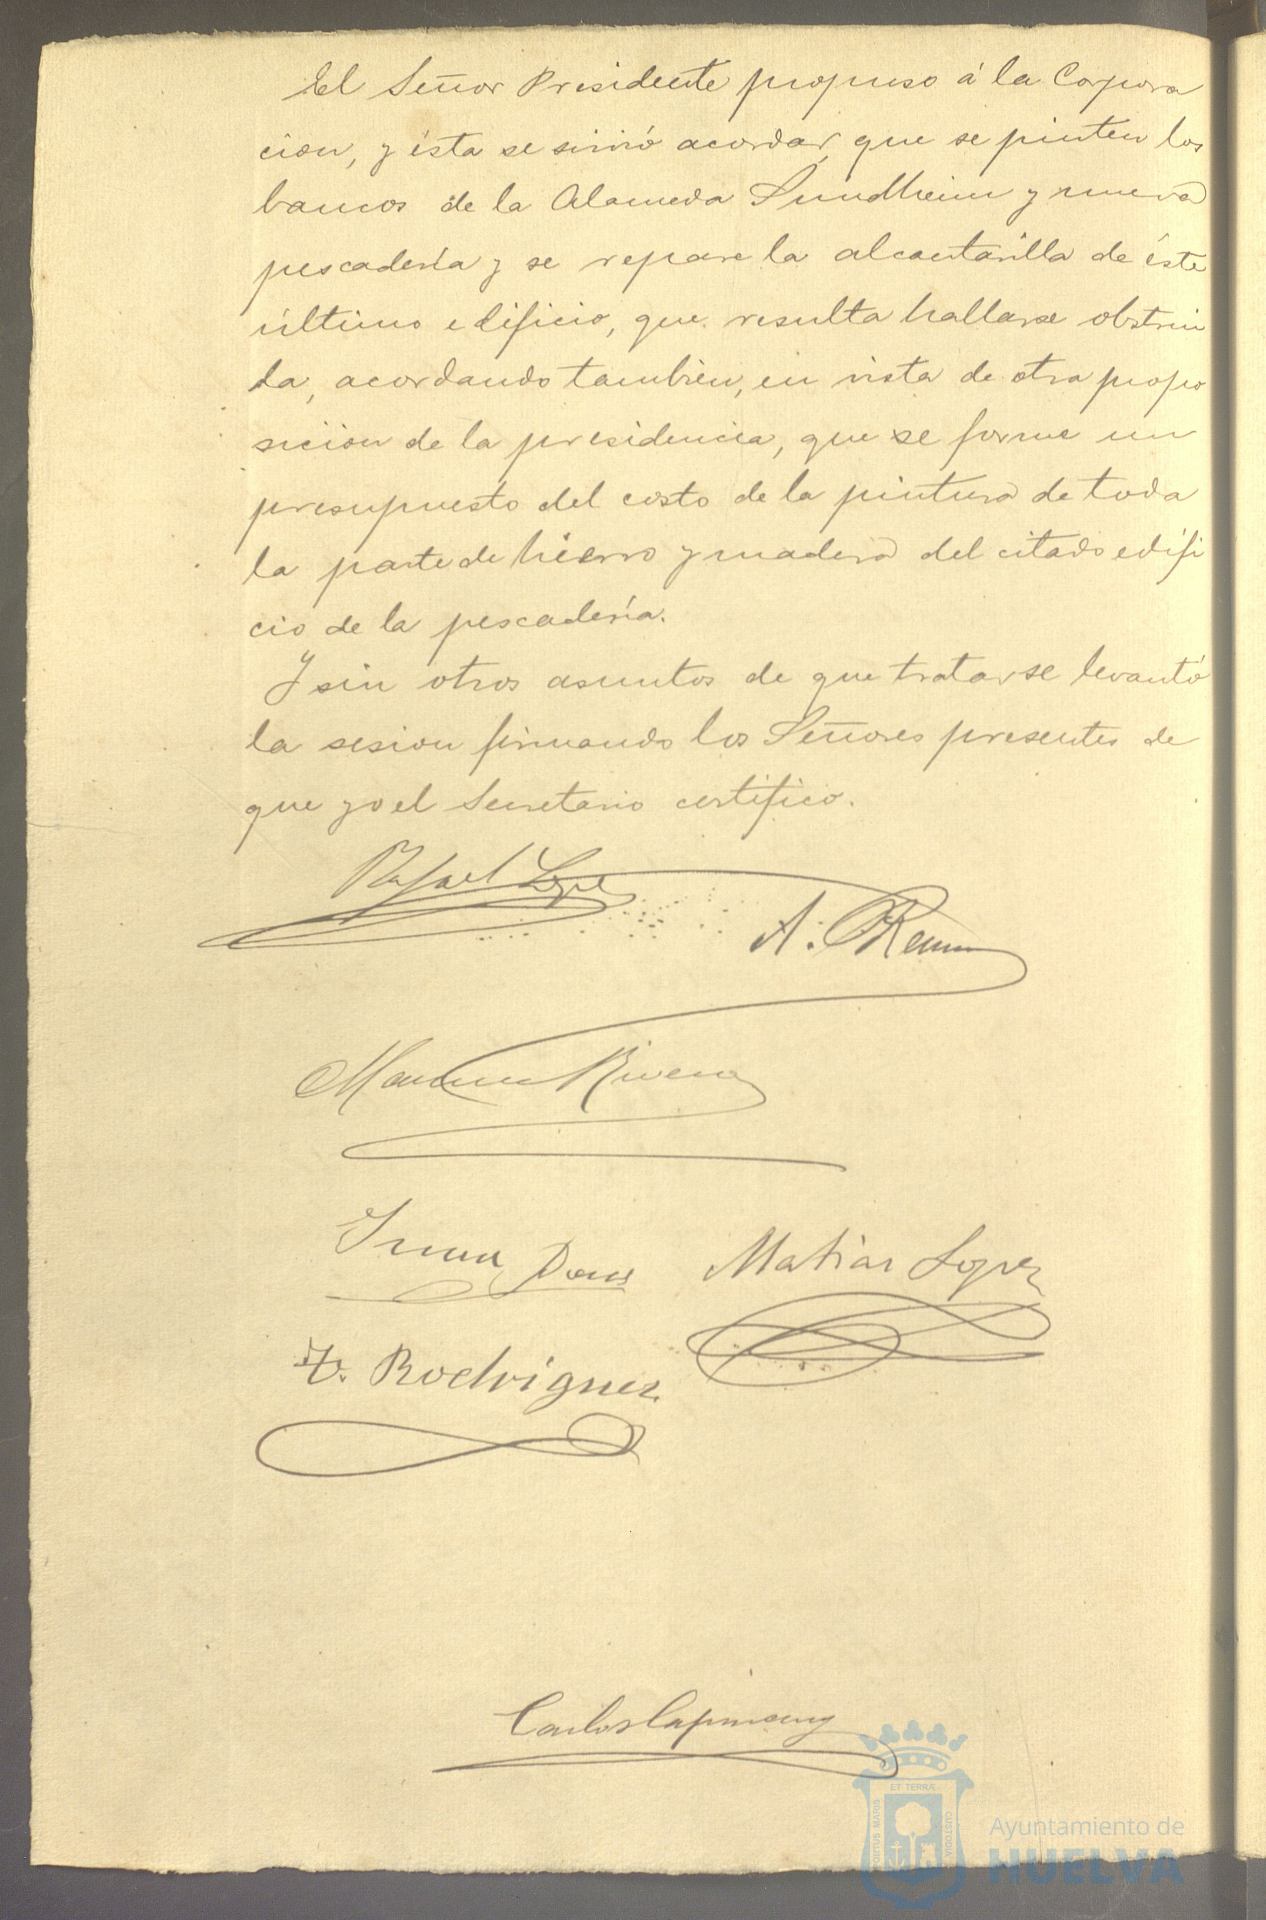 El Señor Presidente propuso á la Corpora
cion, y ésta se sirvió acordar, que se pinten los
bancos de la Alameda Sundheim y nueva
pescadería y se repare la alcantarilla de éste
último edificio, que resulta hallarse obstrui
da, acordando tambien, en vista de otra propo
sicion de la presidencia, que se forme un
presupuesto del costo de la pintura de toda
la parte de hierro y madera del citado edifi
cio de la pescadería.
Y sin otros asuntos de que tratar se levantó
la sesion firmando los Señores presentes de
que yo el Secretario certifico.
Rafael Lopez
A.
Manuel Rivera
Matias Lopez
Rodriguez
Carlos
ET TERRÆ
PORTUS MARIS
CUSTODIA
Ayuntamiento de
HUELVA